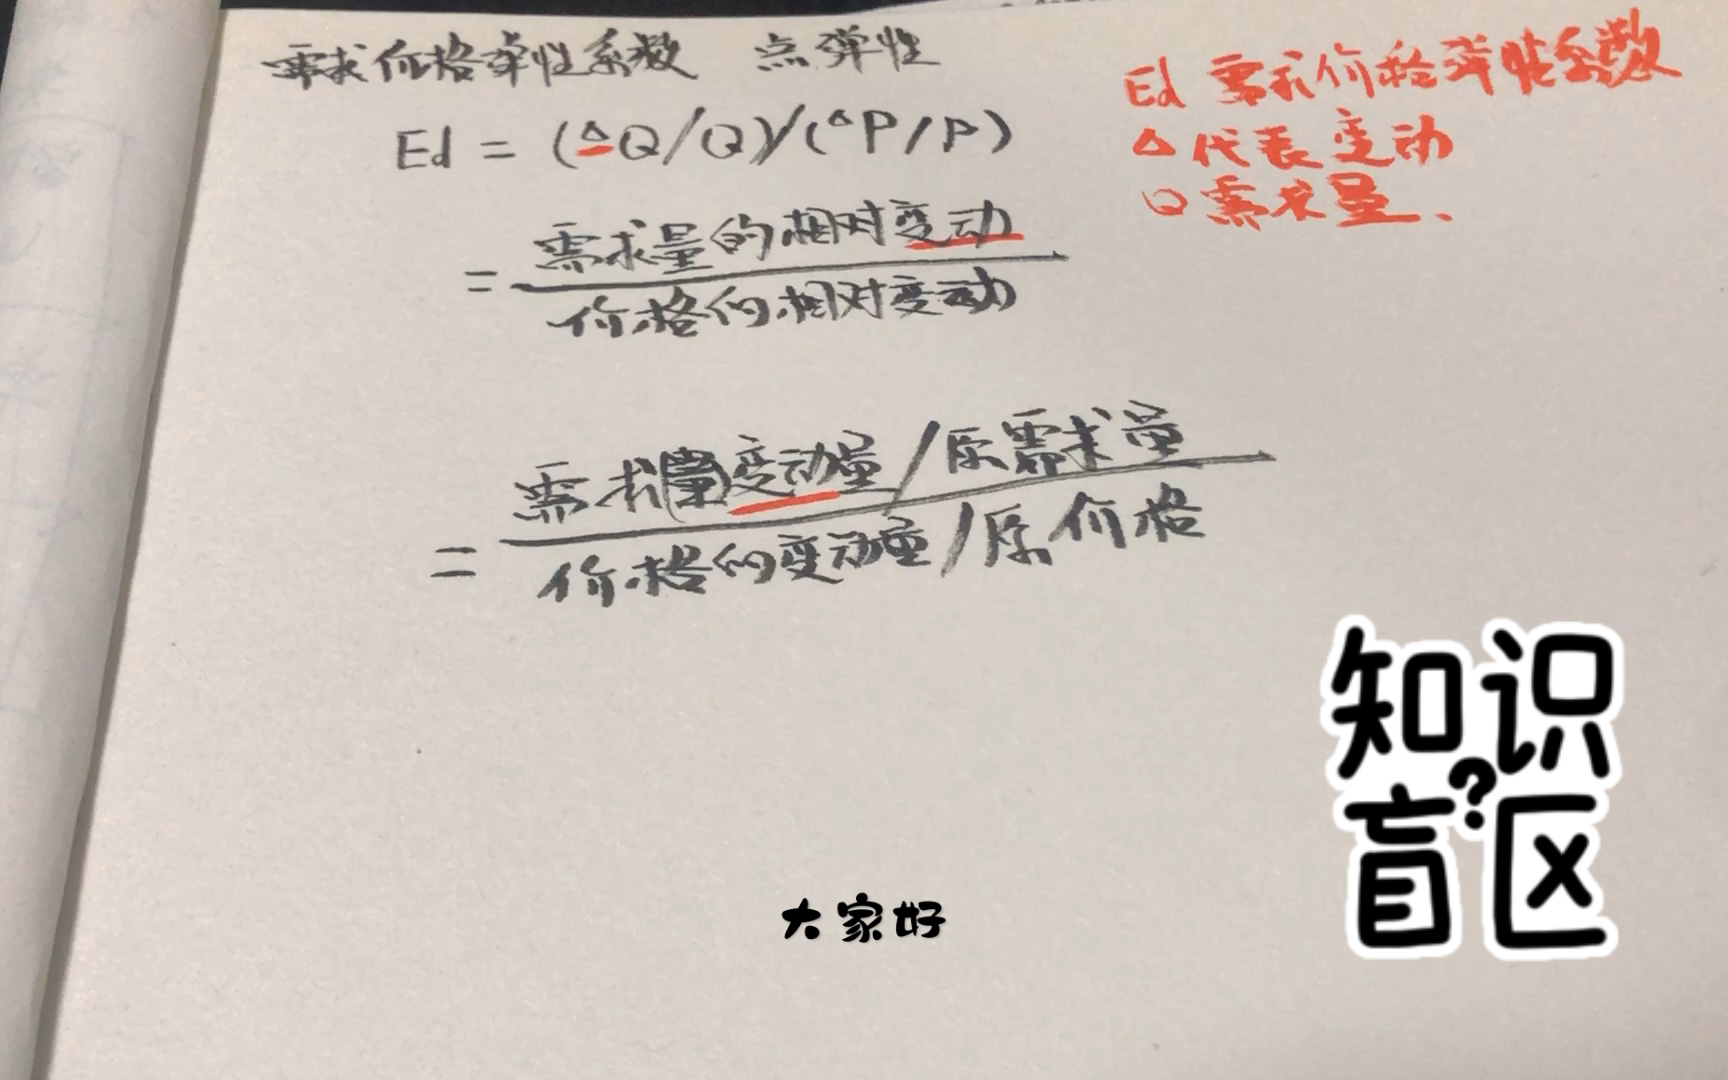 需求价格弹性系数 点弹性
Ed = (△Q/Q)/(△P/P)
= 需求量的相对变动
价格的相对变动
= 需求量变动量/原需求量
价格的变动量/原价格
Ed 需求价格弹性系数
△代表变动
Q需求量.
知识
盲?区
大家好